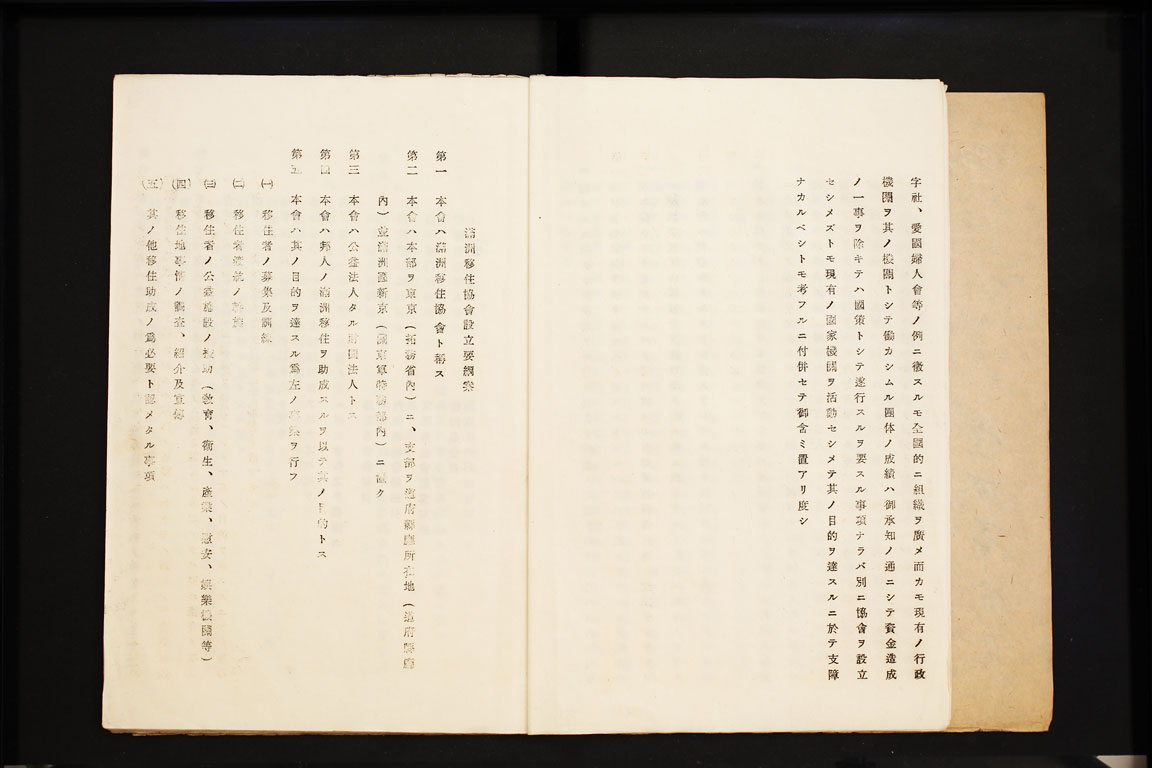 字社、愛國婦人會等ノ例ニ徴スルモ全國的ニ組織ヲ廣メ而カモ現有ノ行政
機關ヲ其ノ機關トシテ働カシムル團体ノ成績ハ御承知ノ通ニシテ資金造成
ノ一事ヲ除キテハ國策トシテ遂行スルヲ要スル事項ナラバ別ニ協會ヲ設立
セシメズトモ現有ノ國家機關ヲ活動セシメテ其ノ目的ヲ達スルニ於テ支障
ナカルベシトモ考フルニ付併セテ御含ミ置アリ度シ
滿洲移住協會設立要綱案
第一 本會ハ滿洲移住協會ト稱ス
第二 本會ハ本部ヲ東京(拓務省內)ニ、支部ヲ道府縣廳所在地(道府縣廳
內)並滿洲國新京(關東軍特務部內)ニ置ク
第三 本會ハ公益法人タル財團法人トス
第四 本會ハ邦人ノ滿洲移住ヲ助成スルヲ以テ其ノ目的トス
第五 本會ハ其ノ目的ヲ達スル爲左ノ事業ヲ行フ
㈠ 移住者ノ募集及訓練
㈡ 移住者ノ
㈢ 移住者ノ公益施設ノ補助(敎育、衞生、產業、慰安、娛樂機關等)
㈣ 移住地事情ノ調査、紹介及宣傳
㈤ 其ノ他移住助成ノ爲必要ト認メタル事項